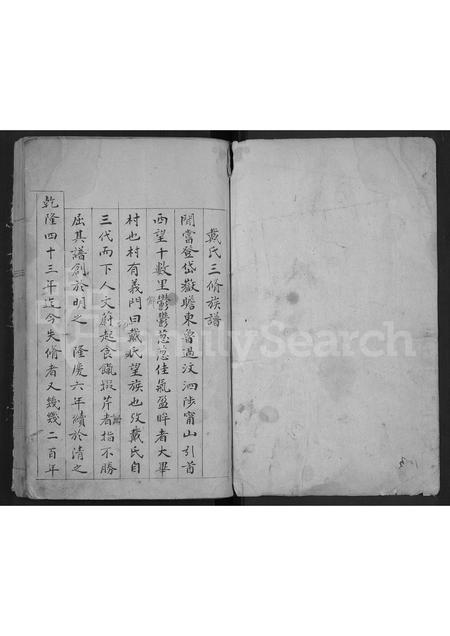 戴氏三脩族譜
開嘗登岱嶽瞻東魯過汶泗陟甯山引首
西望十數里鬱鬱葱葱佳氣盈眸者大畢
村也村有義門曰戴氏望族也攷戴氏自
三代而下人文蔚起食餼掇芹者指不勝
屈其譜創於明之 隆慶六年續於清之
乾隆四十三年迄今失脩者又幾幾二百年
FamilySearch